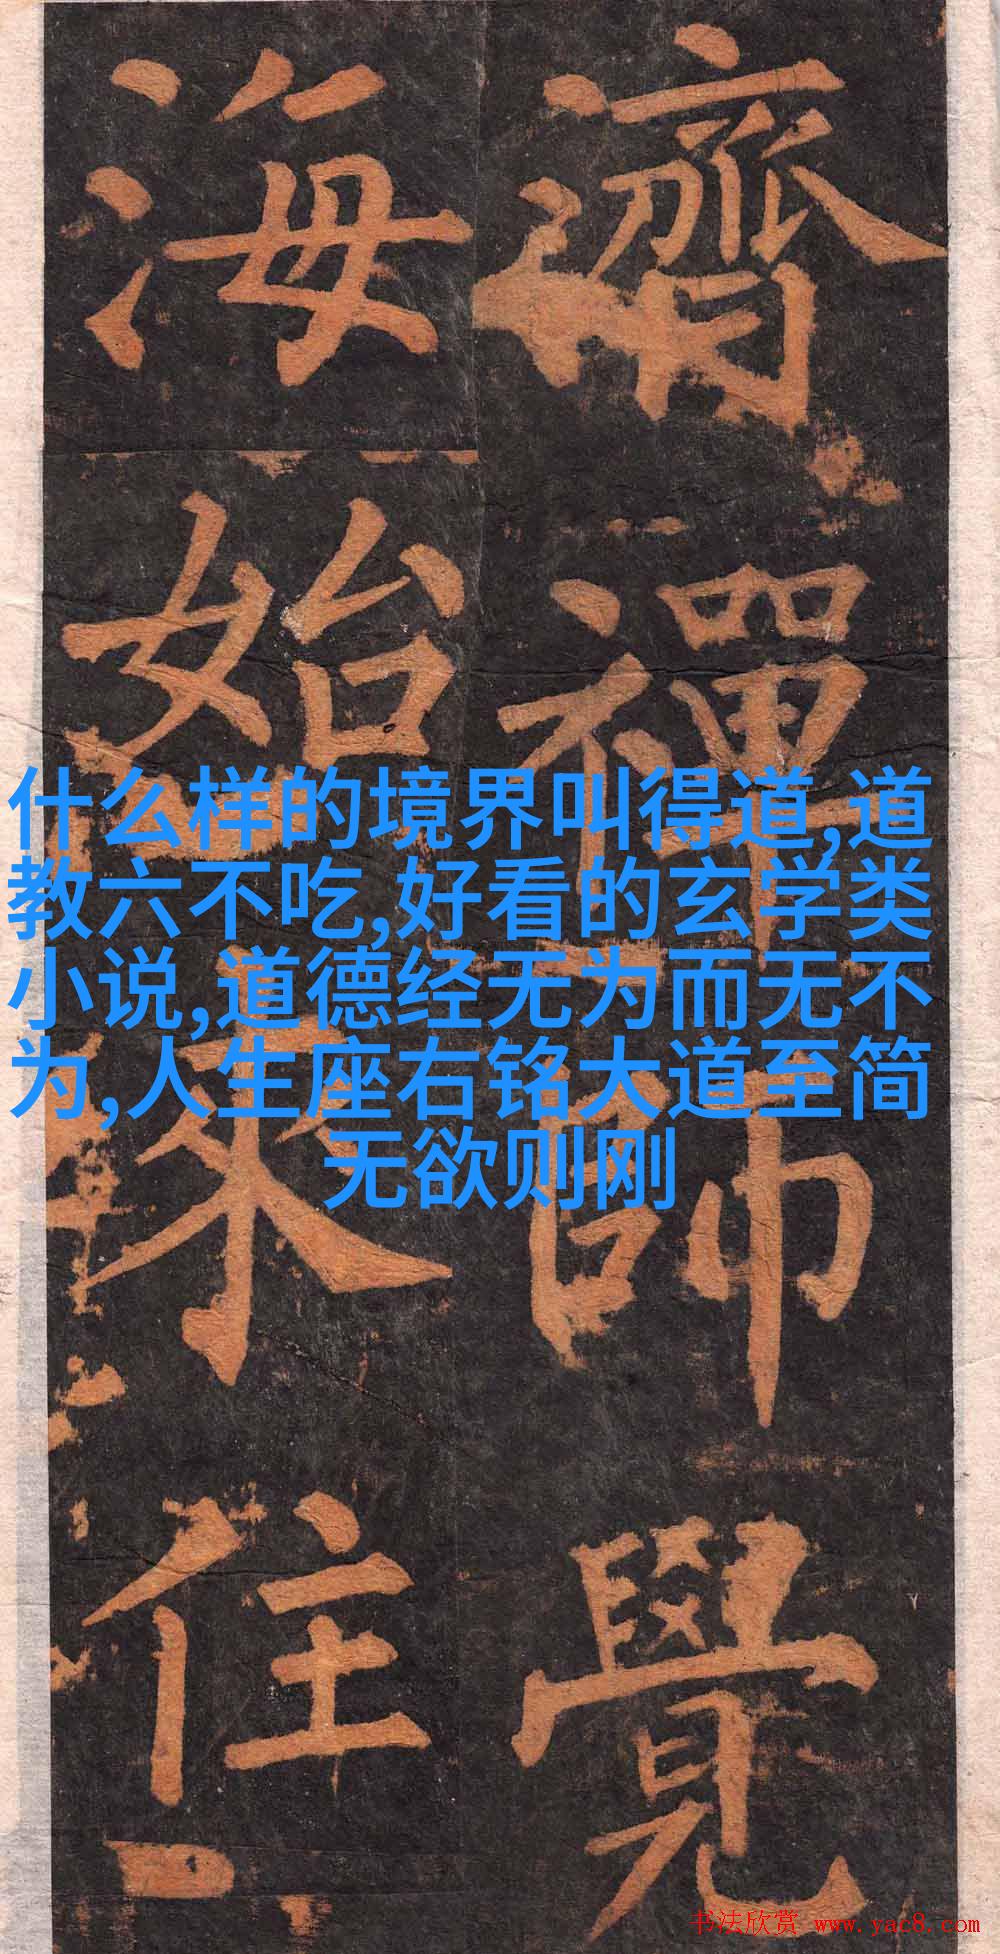 濟禪師覺
海始來住
什么样的境界叫得道,道
教六不吃,好看的玄学类
小说,道德经无为而无不
为,人生座右铭大道至简
无欲则刚
书法欣赏 www.yac8.com